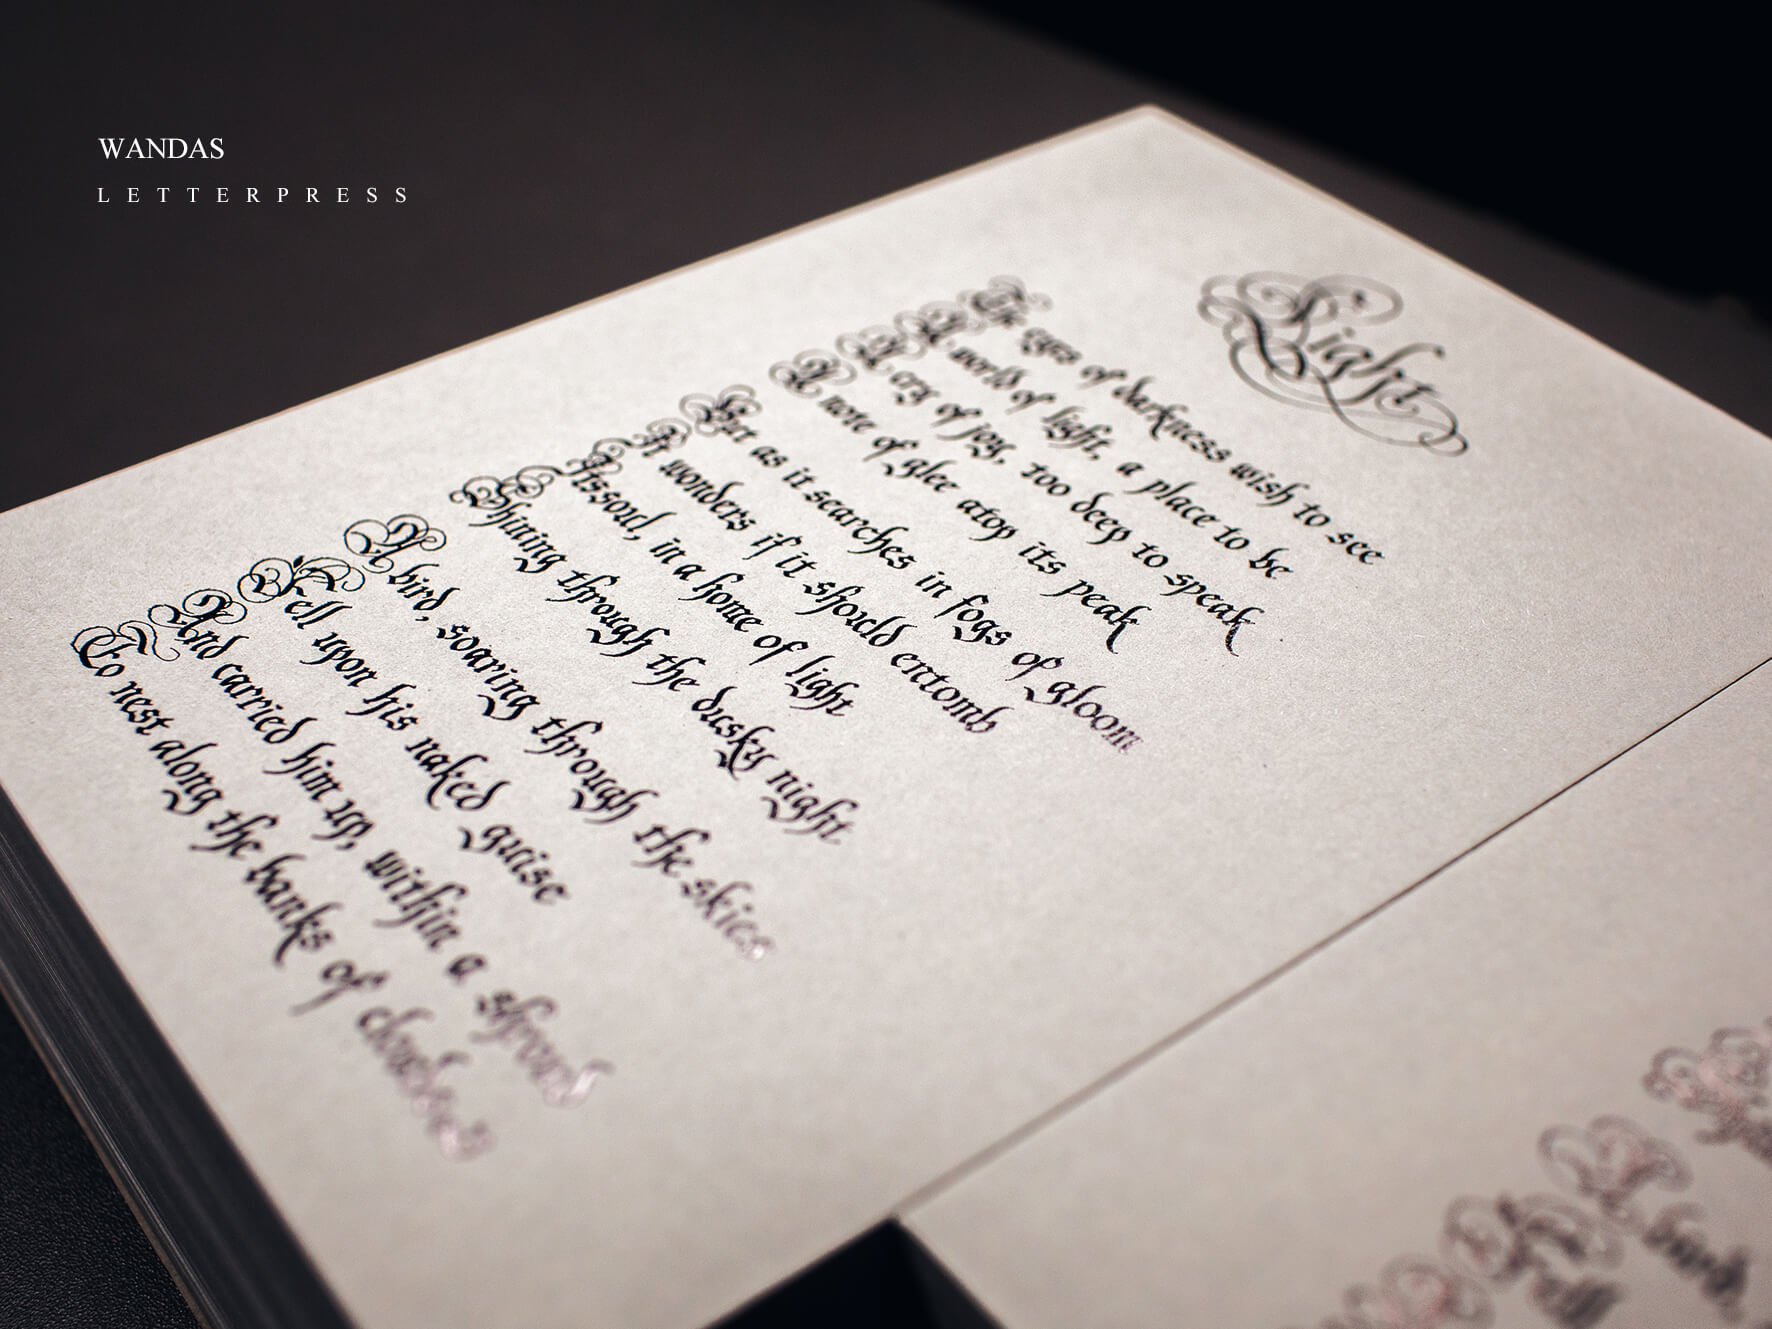 WANDAS
LETTERPRESS
Light
The eyes of darkness wish to see
A world of light, a place to be
A cry of joy, too deep to speak
A note of glee atop its peak
Yet as it searches in fogs of gloom
It wonders if it should entomb
Itssoul, in a home of light
Shining through the dusky night
A bird, soaring through the skies
Fell upon his naked guise
And carried him up, within a shroud
To nest along the banks of